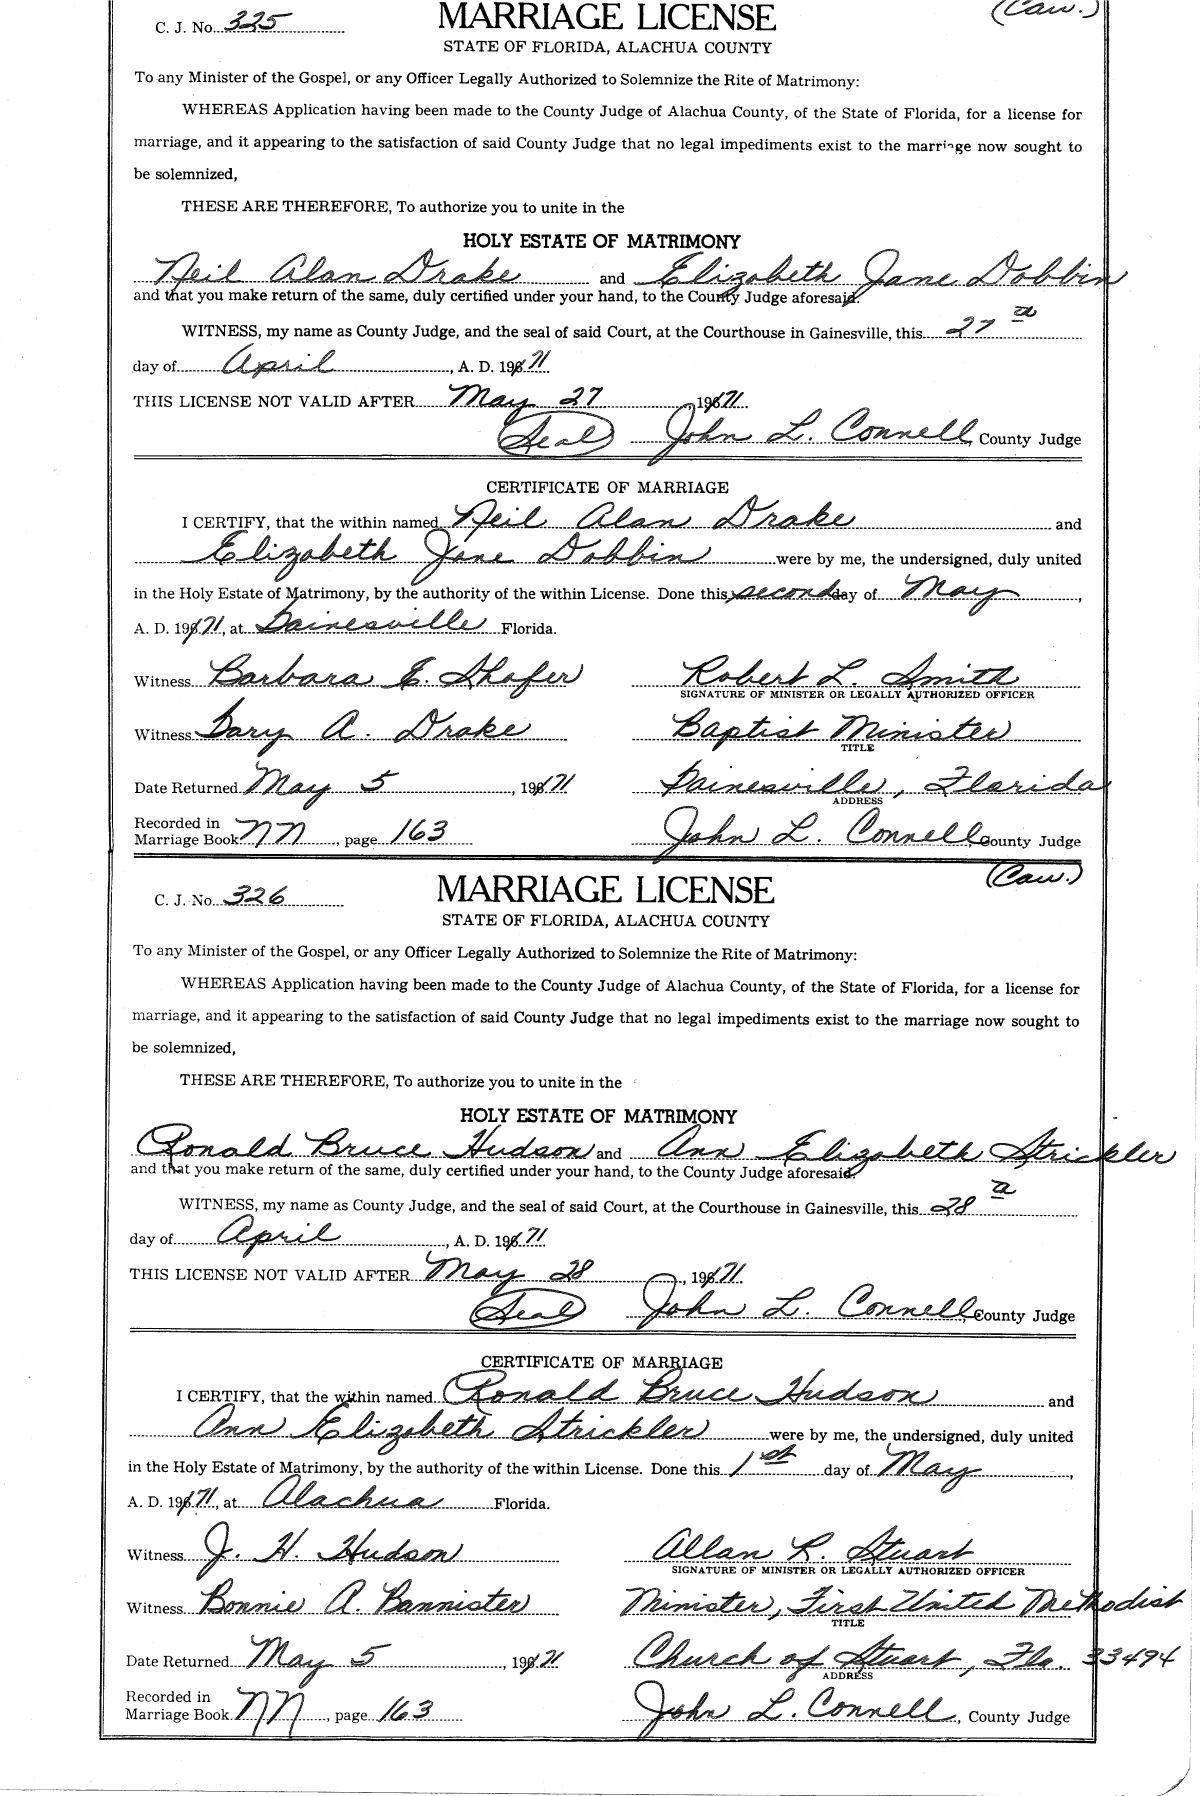 C. J. No. 325 MARRIAGE LICENSE (Cau.)
STATE OF FLORIDA, ALACHUA COUNTY
To any Minister of the Gospel, or any Officer Legally Authorized to Solemnize the Rite of Matrimony:
WHEREAS Application having been made to the County Judge of Alachua County, of the State of Florida, for a license for
marriage, and it appearing to the satisfaction of said County Judge that no legal impediments exist to the marriage now sought to
be solemnized,
THESE ARE THEREFORE, To authorize you to unite in the
HOLY ESTATE OF MATRIMONY
Neil Alan Drake and Elizabeth Jane Dobbin
and that you make return of the same, duly certified under your hand, to the County Judge aforesaid.
WITNESS, my name as County Judge, and the seal of said Court, at the Courthouse in Gainesville, this 27
day of April, A. D. 1971.
THIS LICENSE NOT VALID AFTER May 27, 1971.
(Seal) John L. Connell, County Judge
CERTIFICATE OF MARRIAGE
I CERTIFY, that the within named Neil Alan Drake and
Elizabeth Jane Dobbin were by me, the undersigned, duly united
in the Holy Estate of Matrimony, by the authority of the within License. Done this second day of May,
A. D. 1971, at Gainesville Florida.
Witness Barbara E. Shafer Robert L. Smith
SIGNATURE OF MINISTER OR LEGALLY AUTHORIZED OFFICER
Witness Gary A. Drake Baptist Minister
TITLE
Date Returned May 5, 1971 Gainesville, Florida
ADDRESS
Recorded in
Marriage Book NN, page 163 John L. Connell County Judge
C. J. No. 326 MARRIAGE LICENSE (Cau.)
STATE OF FLORIDA, ALACHUA COUNTY
To any Minister of the Gospel, or any Officer Legally Authorized to Solemnize the Rite of Matrimony:
WHEREAS Application having been made to the County Judge of Alachua County, of the State of Florida, for a license for
marriage, and it appearing to the satisfaction of said County Judge that no legal impediments exist to the marriage now sought to
be solemnized,
THESE ARE THEREFORE, To authorize you to unite in the
HOLY ESTATE OF MATRIMONY
Ronald Bruce Hudson and Ann Elizabeth Strickler
and that you make return of the same, duly certified under your hand, to the County Judge aforesaid.
WITNESS, my name as County Judge, and the seal of said Court, at the Courthouse in Gainesville, this 28
day of April, A. D. 1971.
THIS LICENSE NOT VALID AFTER May 28, 1971.
(Seal) John L. Connell, County Judge
CERTIFICATE OF MARRIAGE
I CERTIFY, that the within named Ronald Bruce Hudson and
Ann Elizabeth Strickler were by me, the undersigned, duly united
in the Holy Estate of Matrimony, by the authority of the within License. Done this 1st day of May,
A. D. 1971, at Alachua Florida.
Witness J. H. Hudson Allan R. Stuart
SIGNATURE OF MINISTER OR LEGALLY AUTHORIZED OFFICER
Witness Bonnie A. Bannister Minister, First United Methodist
TITLE
Date Returned May 5, 1971 Church of Stuart, Fla. 33494
ADDRESS
Recorded in
Marriage Book NN, page 163 John L. Connell, County Judge